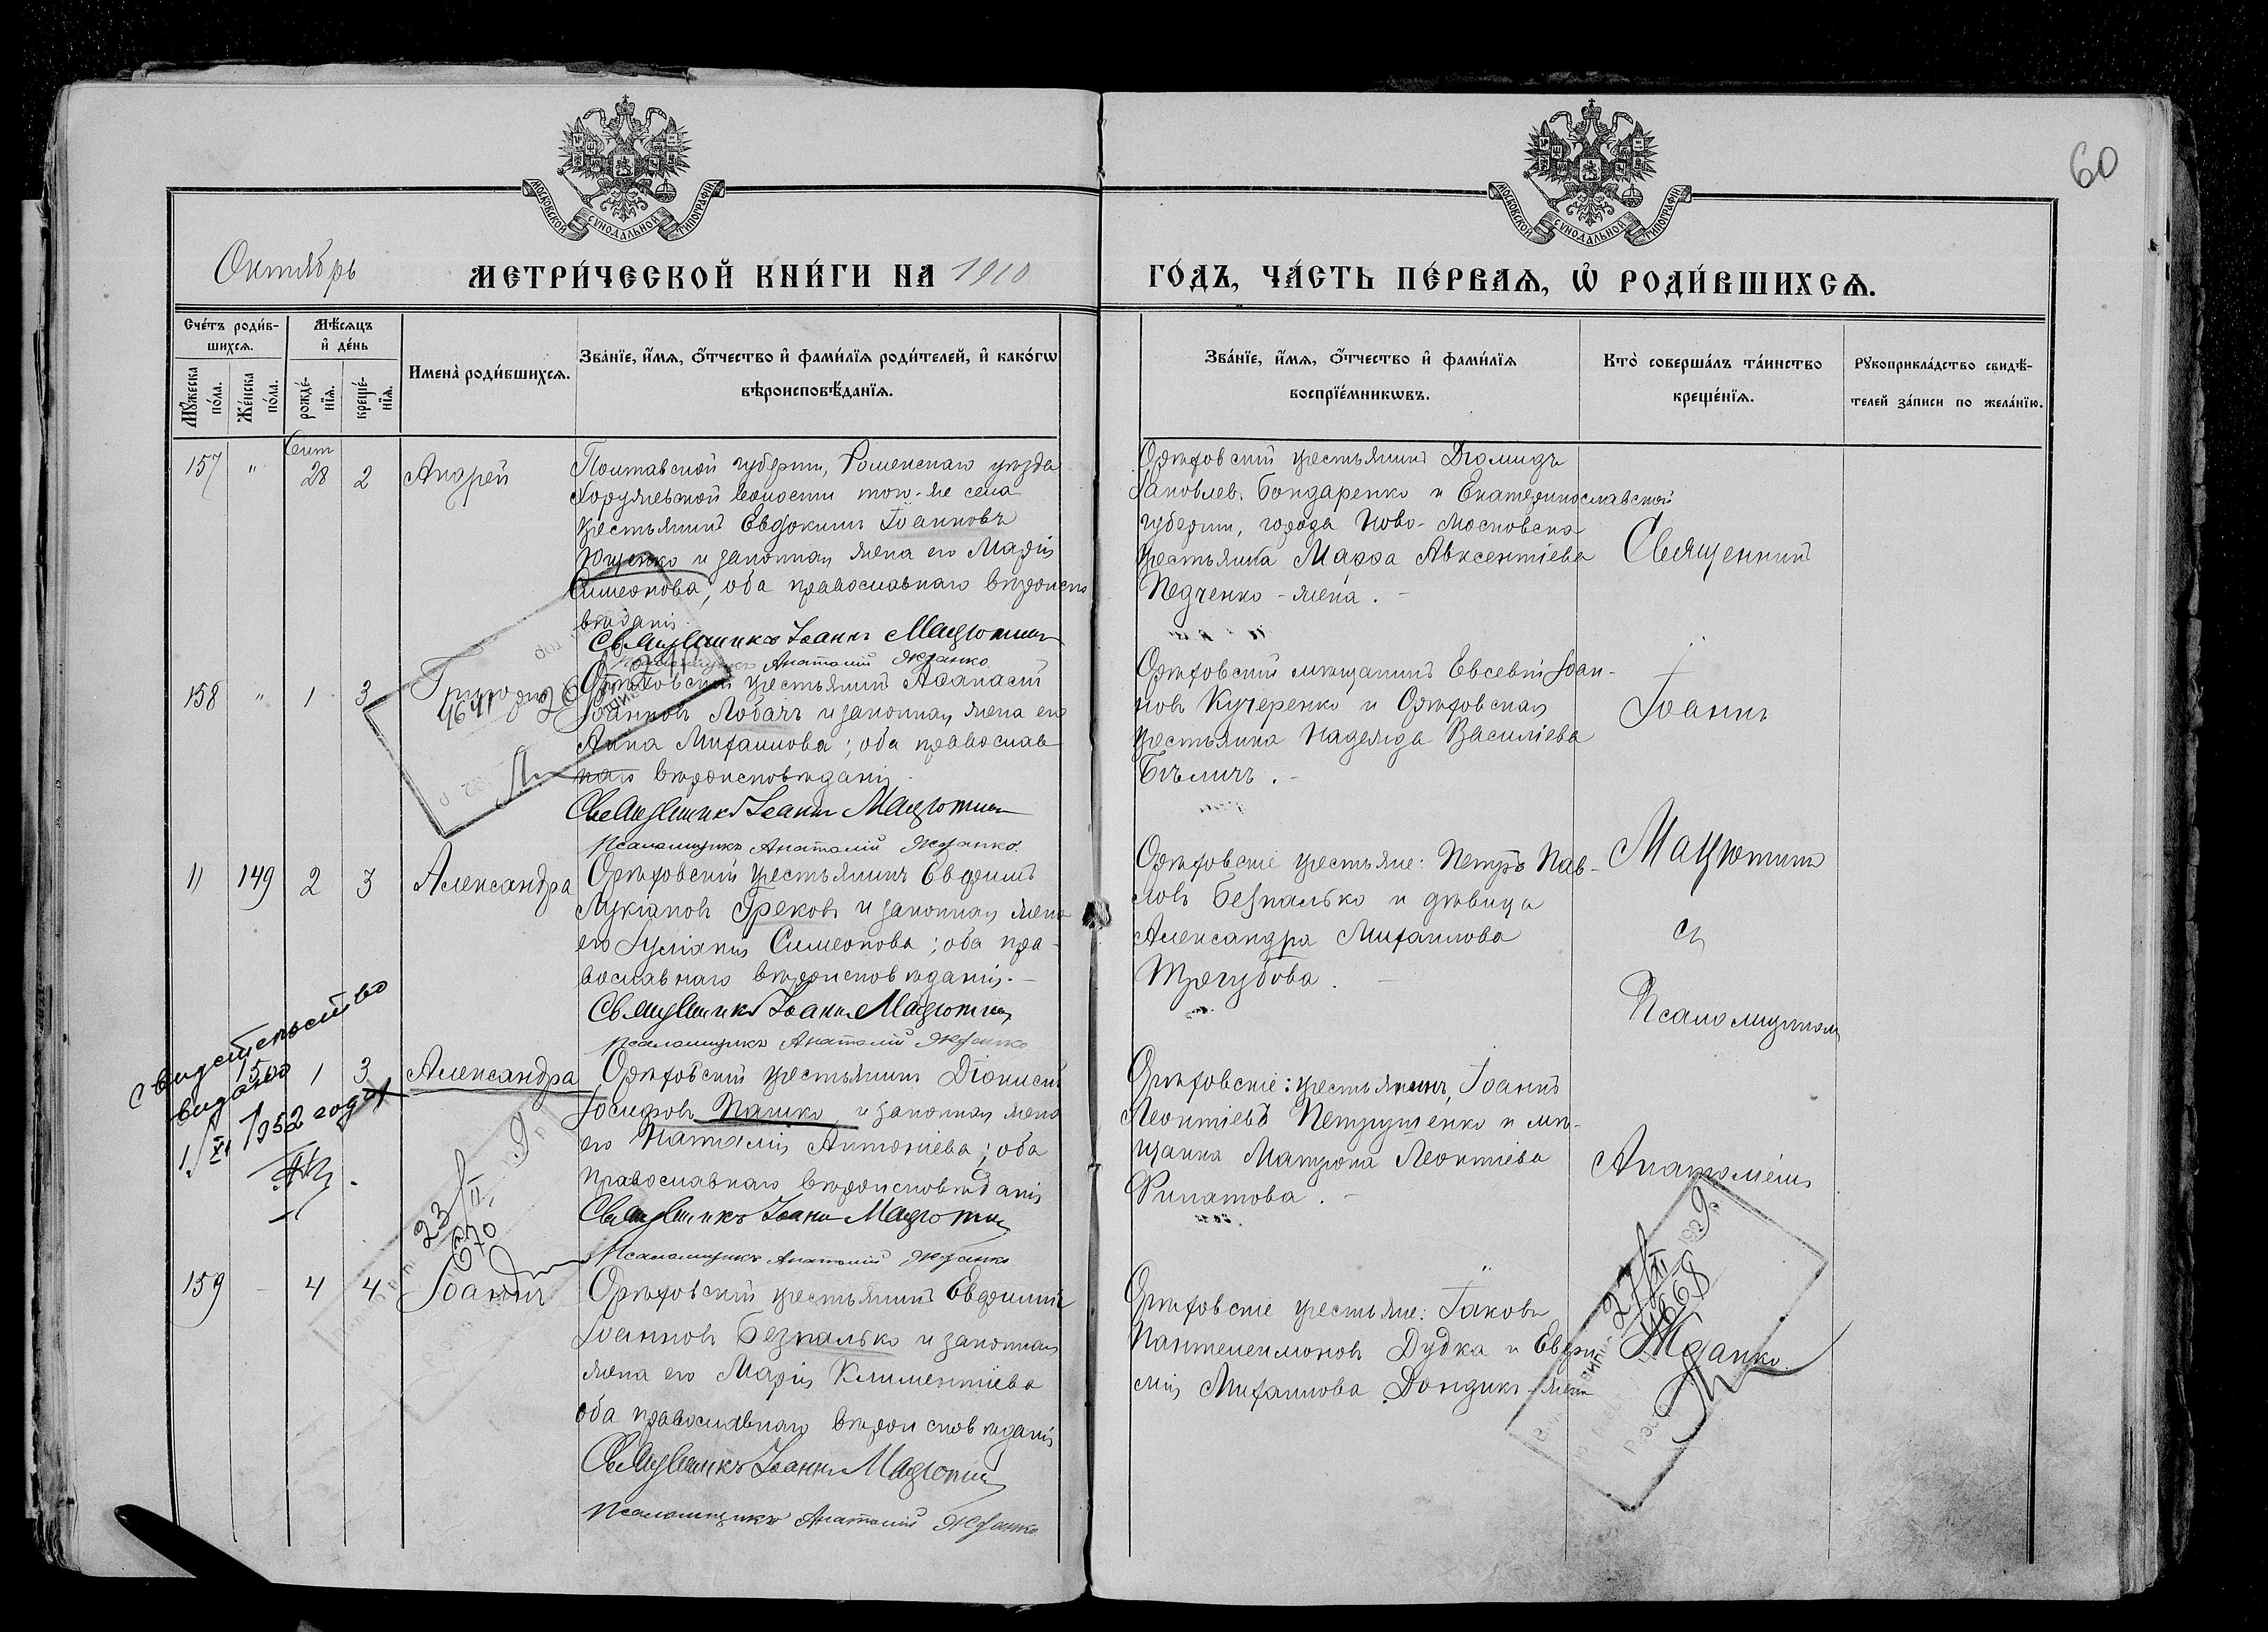 60
МОСКОВСКОЙ СУНОДАЛЬНОЙ ТИПОГРАФІИ
МОСКОВСКОЙ СУНОДАЛЬНОЙ ТИПОГРАФІИ
Октябрь
МЕТРИ́ЧЕСКОЙ КНИ́ГИ НА 1910
ГО́ДЪ, ЧА́СТЬ ПЕ́РВАѦ, Ѡ҆ РОДИ́ВШИХСѦ.
Сче́тъ роди́в-
шихсѧ.
Мꙋ́жеска
по́ла.
Же́нска
по́ла.
Мѣ́сѧцъ
и҆ де́нь
рожде́-
нїѧ.
креще́-
нїѧ.
Имена̀ роди́вшихсѧ.
Зва́нїе, и҆́мѧ, ѻ҆́тчество и҆ фами́лїѧ роди́телей, и҆ како́гѡ
вѣроисповѣ́данїѧ.
Зва́нїе, и҆́мѧ, ѻ҆́тчество и҆ фами́лїѧ
воспрїе́мникѡвъ.
Кто̀ соверша́лъ та́инство
креще́нїѧ.
Рꙋкоприкла́дство свидѣ́-
телей за́писи по жела́нїю.
157 " Сент 28 2 Андрей
Полтавской губерніи, Роменскаго уѣзда
Хоружевской волости того-же села
крестьянинъ Евдокимъ Іоанновъ
Ющенко и законная жена его Марія
Симеонова; оба православнаго вѣроиспо
вѣданія.
Священникъ Іоаннъ Мацютинъ
Псаломщикъ Анатолій Жданко
Орѣховскій крестьянинъ Діомидъ
Іаковлев. Бондаренко и Екатеринославской
губерніи, города Ново-Московска
крестьянка Марфа Авксентіева
Педченко - жена.
158 " 1 3 Григорій
Орѣховскій крестьянинъ Афанасій
Іоанновъ Лобачъ и законная жена его
Анна Михаилова; оба православ-
наго вѣроисповѣданія.
Священникъ Іоаннъ Мацютинъ
Псаломщикъ Анатолій Жданко.
Орѣховскій мѣщанинъ Евсевій Іоан-
новъ Кучеренко и Орѣховская
крестьянка Надежда Василіева
Бѣличъ.
11 149 2 3 Александра
Орѣховскій крестьянинъ Евфимій
Лукіановъ Грековъ и законная жена
его Іуліанія Симеонова; оба пра-
вославнаго вѣроисповѣданія.
Священникъ Іоаннъ Мацютинъ
Псаломщикъ Анатолій Жданко
Орѣховскіе крестьяне: Петръ Пав-
ловъ Безпалько и дѣвица
Александра Михаилова
Трегубова.
150 1 3 Александра
Орѣховскій крестьянинъ Діонисій
Іосифовъ Пашко и законная жена
его Наталія Антоніева; оба
православнаго вѣроисповѣданія
Священникъ Іоаннъ Мацютинъ
Псаломщикъ Анатолій Жданко
Орѣховскіе: крестьянинъ, Іоаннъ
Леонтіевъ Петрушенко и мѣ-
щанка Матрона Леонтіева
Филатова.
свидетельство
видано
1952 года
23/II
670
159 4 4 Іоаннъ
Орѣховскій крестьянинъ Евфимій
Іоанновъ Безпалько и законная
жена его Марія Климентіева
оба православнаго вѣроисповѣданія
Священникъ Іоаннъ Мацютинъ
Псаломщикъ Анатолій Жданко
Орѣховскіе крестьяне: Іаковъ
Пантелеимоновъ Дудка и Евфи
мія Михаилова Дондикъ - жена
Священникъ
Іоаннъ
Мацютинъ
съ
Псаломщикомъ
Анатоліемъ
Жданко.